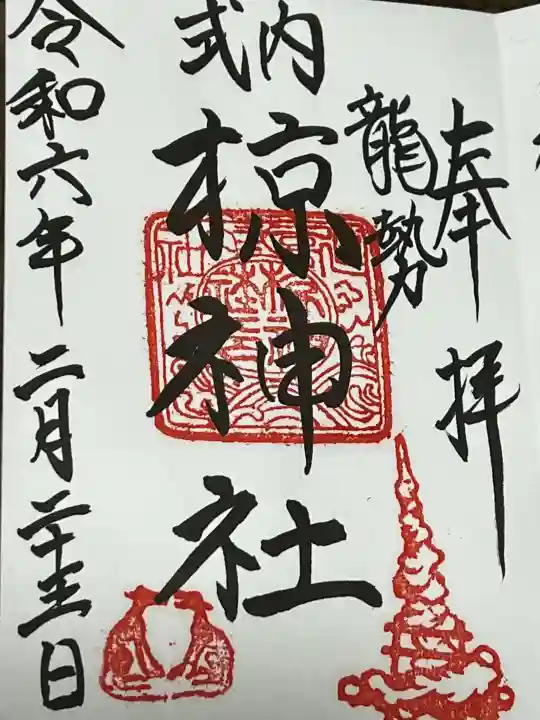 奉拝
龍勢
式内
椋神社
令和六年二月二十五日